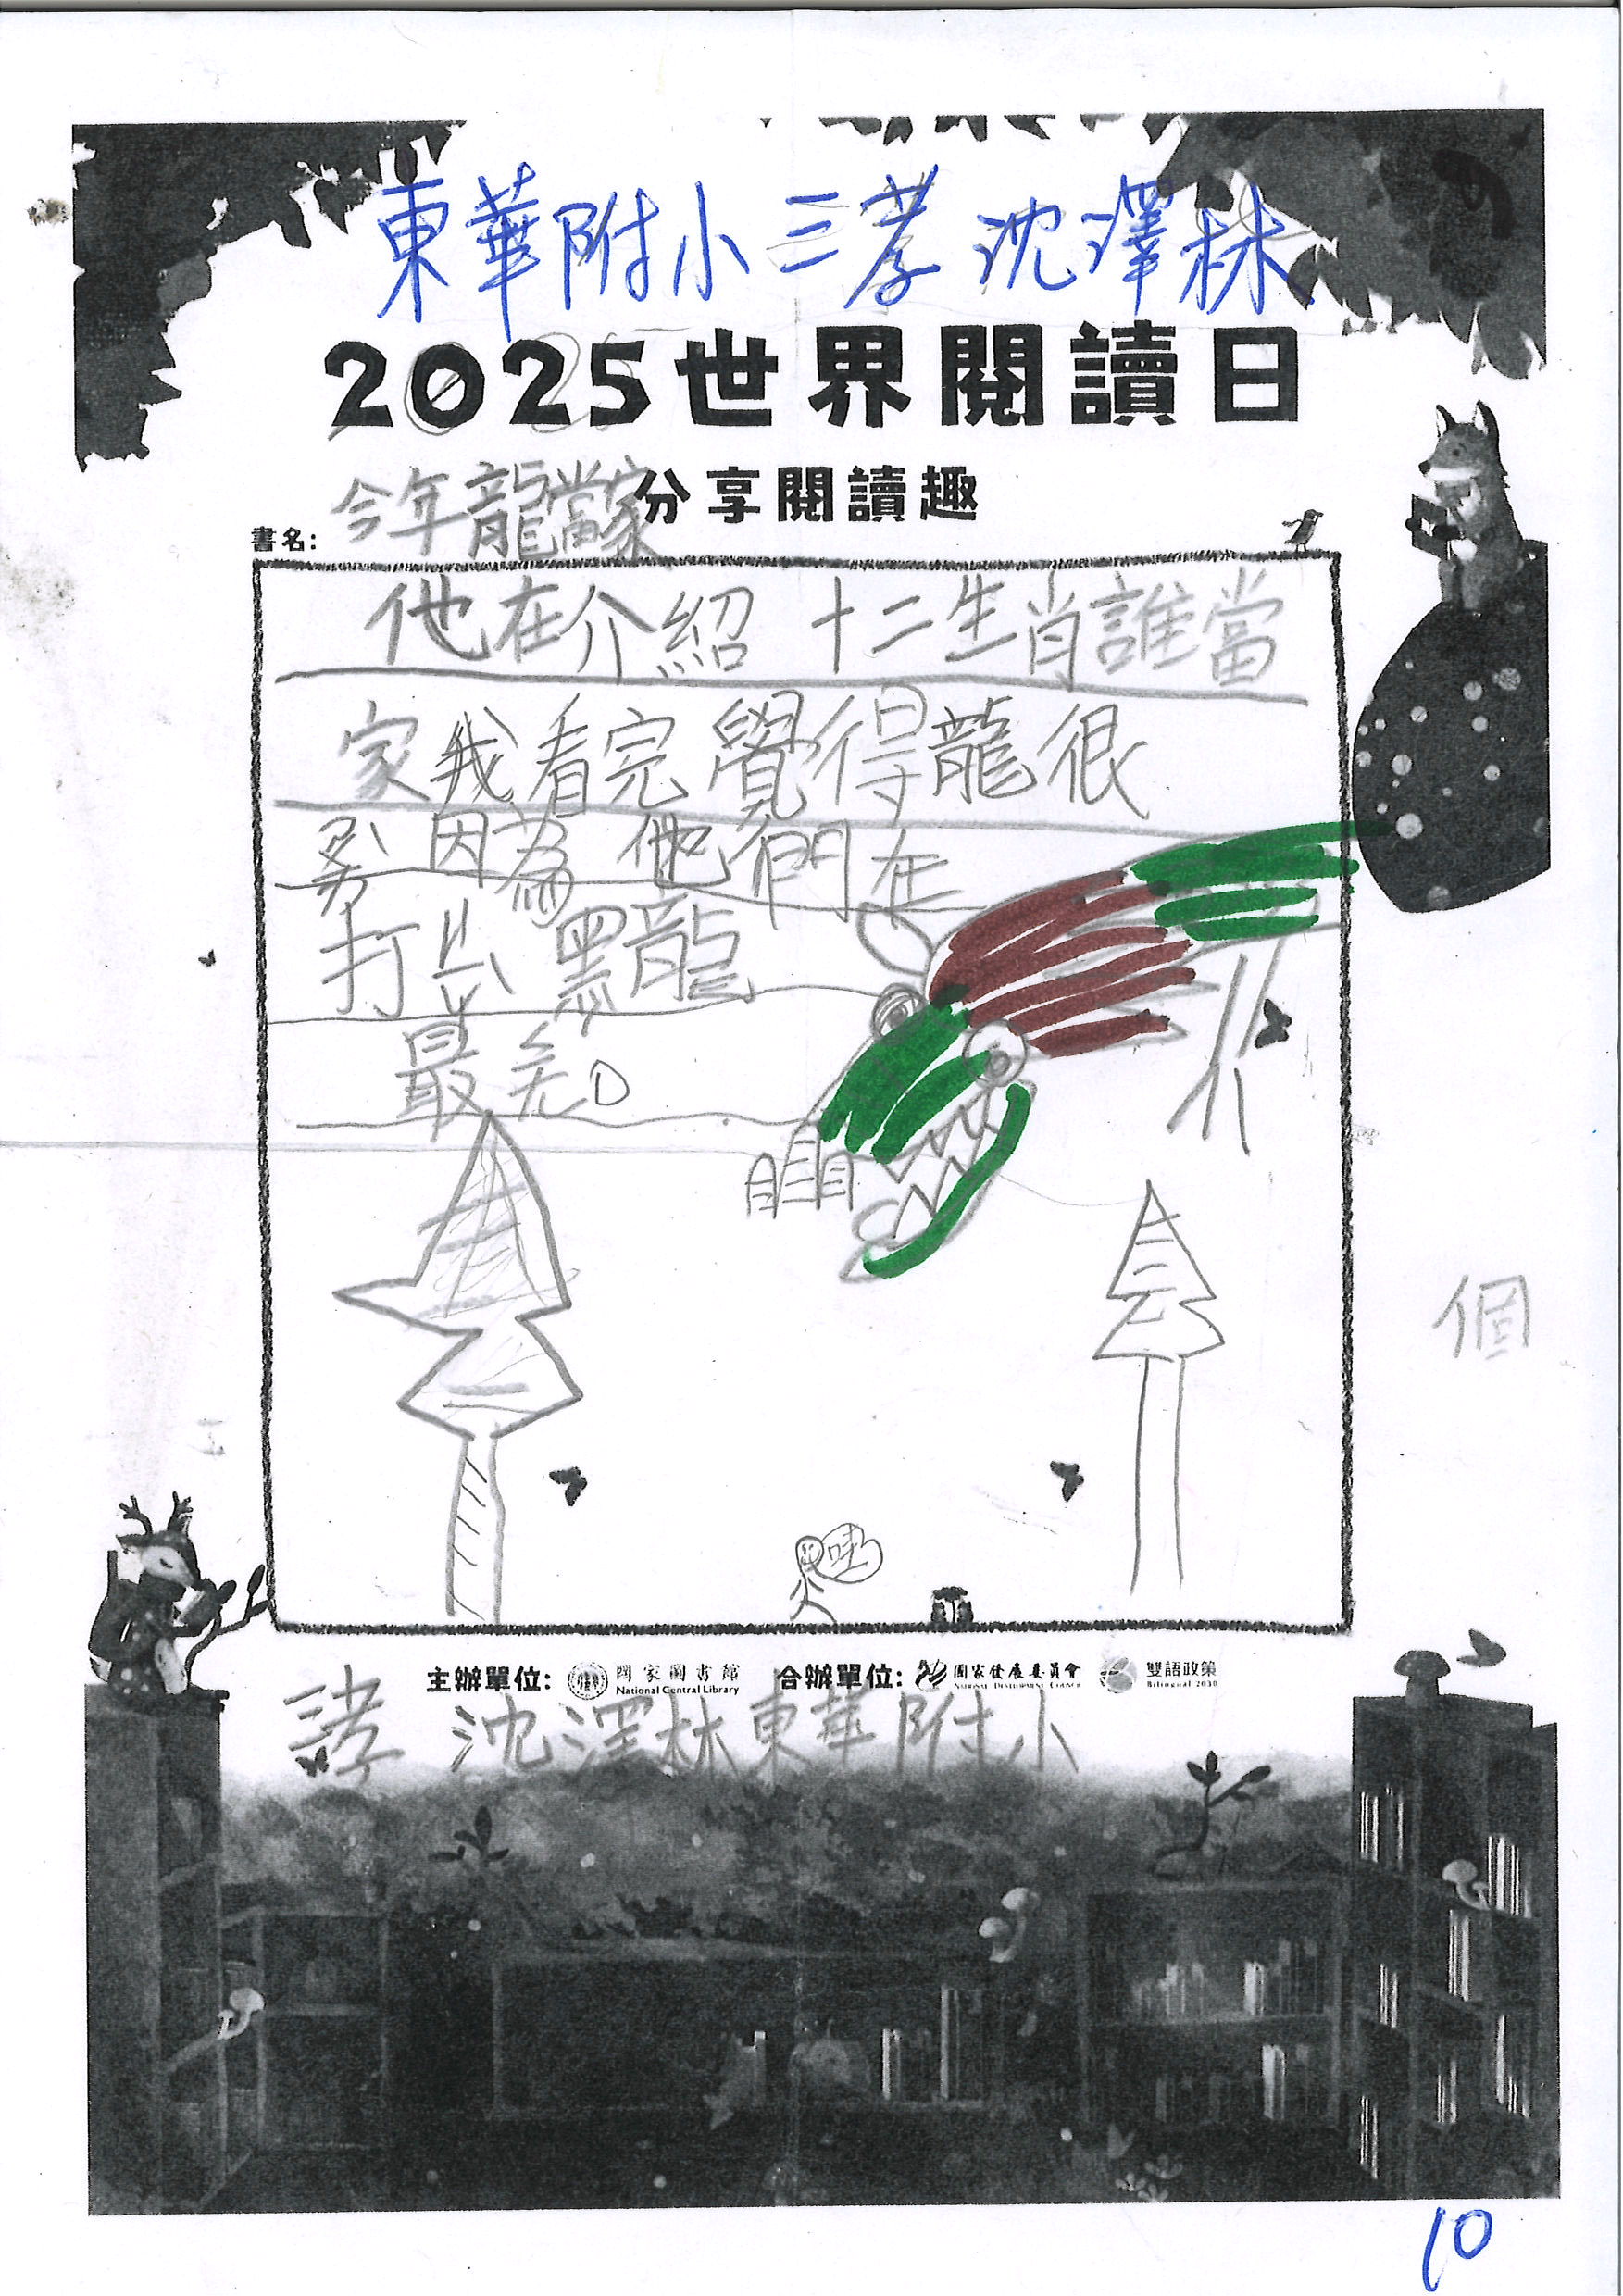 東華附小三孝 沈澤林
2025世界閱讀日
分享閱讀趣
書名: 今年龍當家
他在介紹 十二生肖誰當
家我看完覺得龍很
因為他們在
打 黑龍
最
哇
個
主辦單位: 國家圖書館 National Central Library 合辦單位: 國家發展委員會 National Development Council 雙語政策 Bilingual 2030
三孝 沈澤林東華附小
10